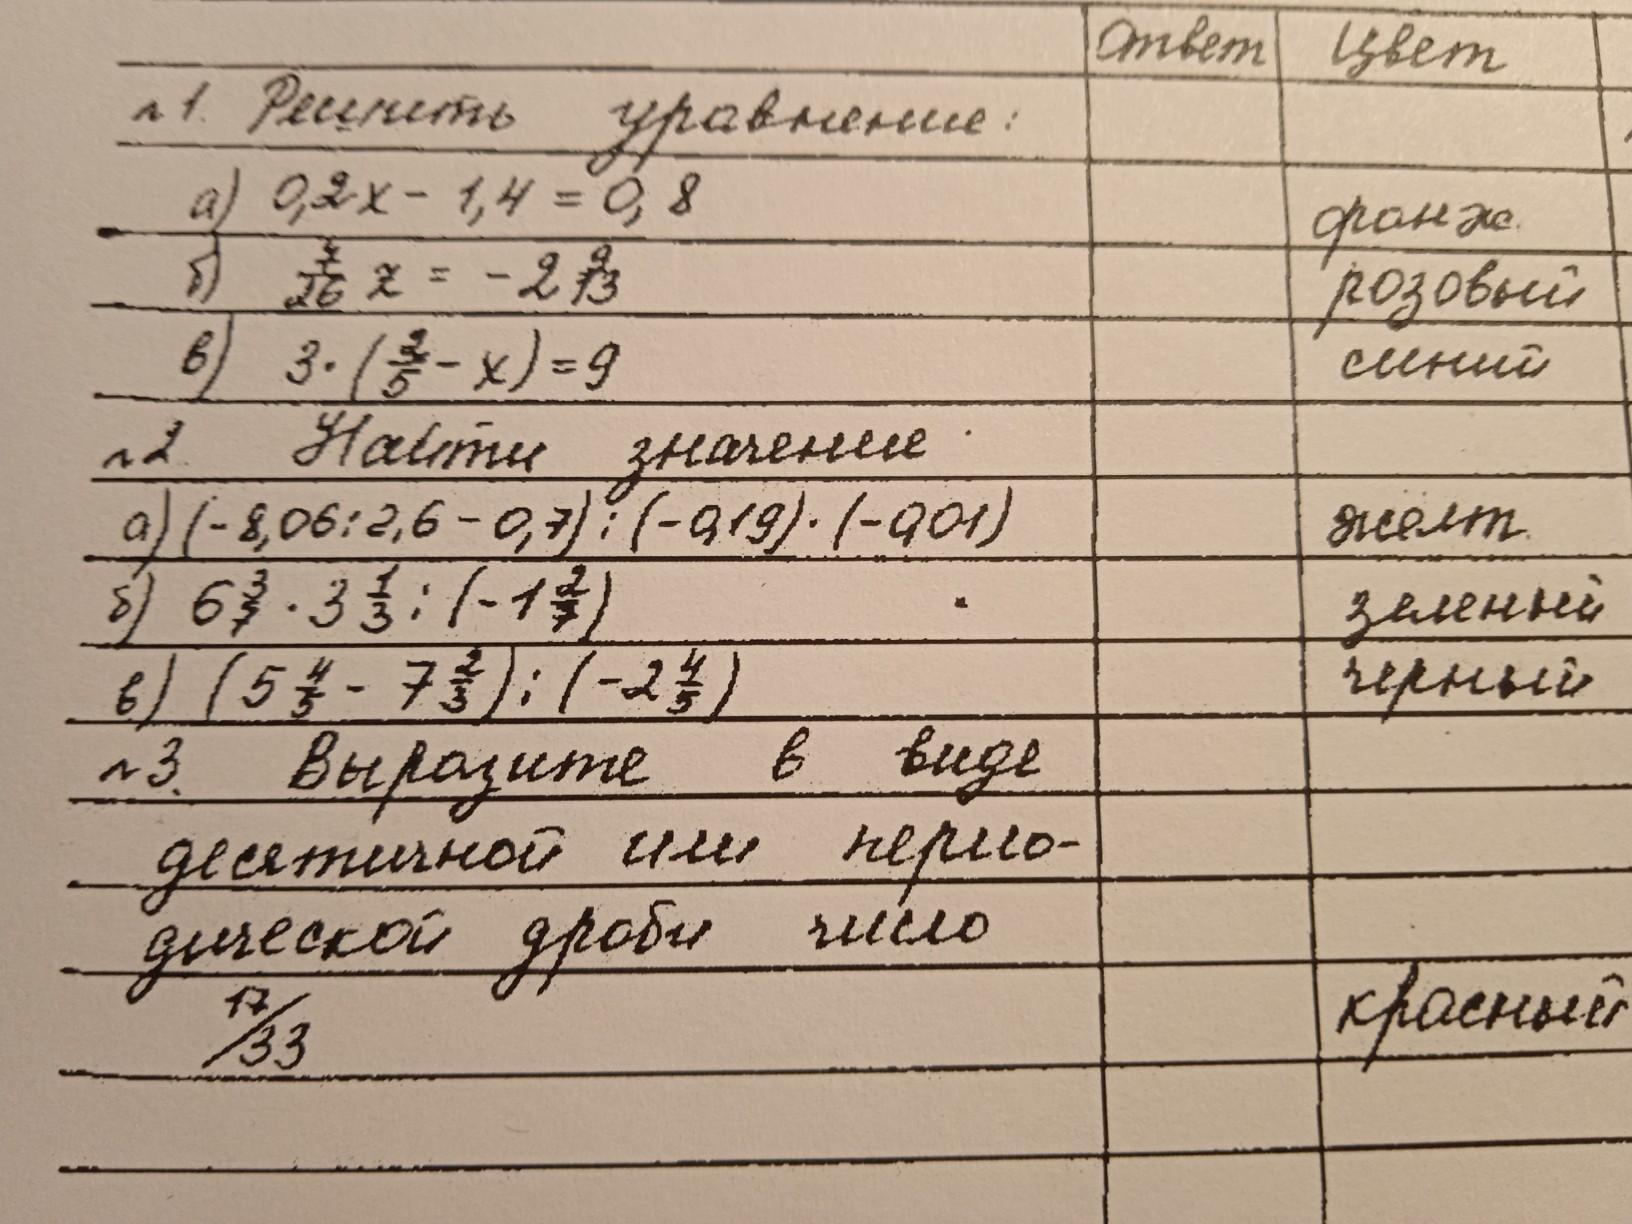 Ответ Цвет
№1. Решить уравнение:
а) 0,2x - 1,4 = 0,8 оранж.
б) 7/26 x = -2 2/13 розовый
в) 3·(2/5 - x) = 9 синий
№2 Найти значение
а) (-8,06:2,6 - 0,7):(-0,19)·(-0,01) желт.
б) 6 3/7 · 3 1/3 : (-1 2/7) зеленый
в) (5 4/5 - 7 2/3) : (-2 4/5) черный
№3. Выразите в виде
десятичной или перио-
дической дроби число
17/33 красный